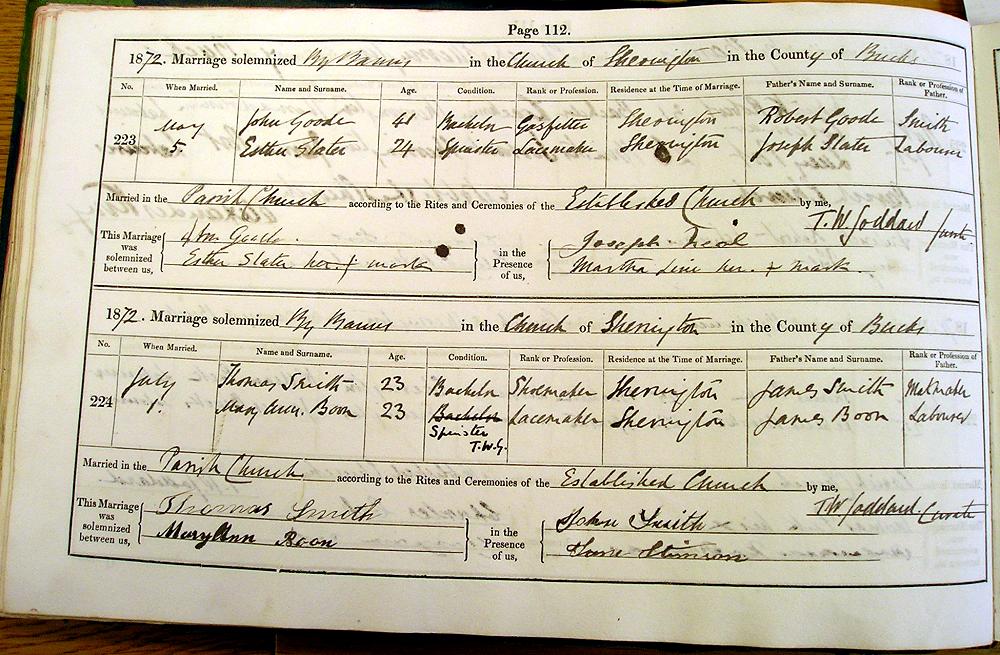 Page 112.
1872. Marriage solemnized By Banns in the Church of Sherington in the County of Bucks
No. When Married. Name and Surname. Age. Condition. Rank or Profession. Residence at the Time of Marriage. Father's Name and Surname. Rank or Profession of Father.
223 May 5. John Goode 41 Bachelor Gasfitter Sherington Robert Goode Smith
Esther Slater 24 Spinster Lacemaker Sherington Joseph Slater Labourer
Married in the Parish Church according to the Rites and Ceremonies of the Established Church by me, T.W. Goddard Curate
This Marriage was solemnized between us, Goode in the Presence of us, Joseph Neal
Esther Slater her + mark Martha Line her + mark
1872. Marriage solemnized By Banns in the Church of Sherington in the County of Bucks
No. When Married. Name and Surname. Age. Condition. Rank or Profession. Residence at the Time of Marriage. Father's Name and Surname. Rank or Profession of Father.
224 July 1. Thomas Smith 23 Bachelor Shoemaker Sherington James Smith Matmaker
Mary Ann Boon 23 Bachelor Lacemaker Sherington James Boon Labourer
Spinster
T.W.G.
Married in the Parish Church according to the Rites and Ceremonies of the Established Church by me, T.W. Goddard. Curate
This Marriage was solemnized between us, Thomas Smith in the Presence of us, John Smith
Mary Ann Boon Stimson